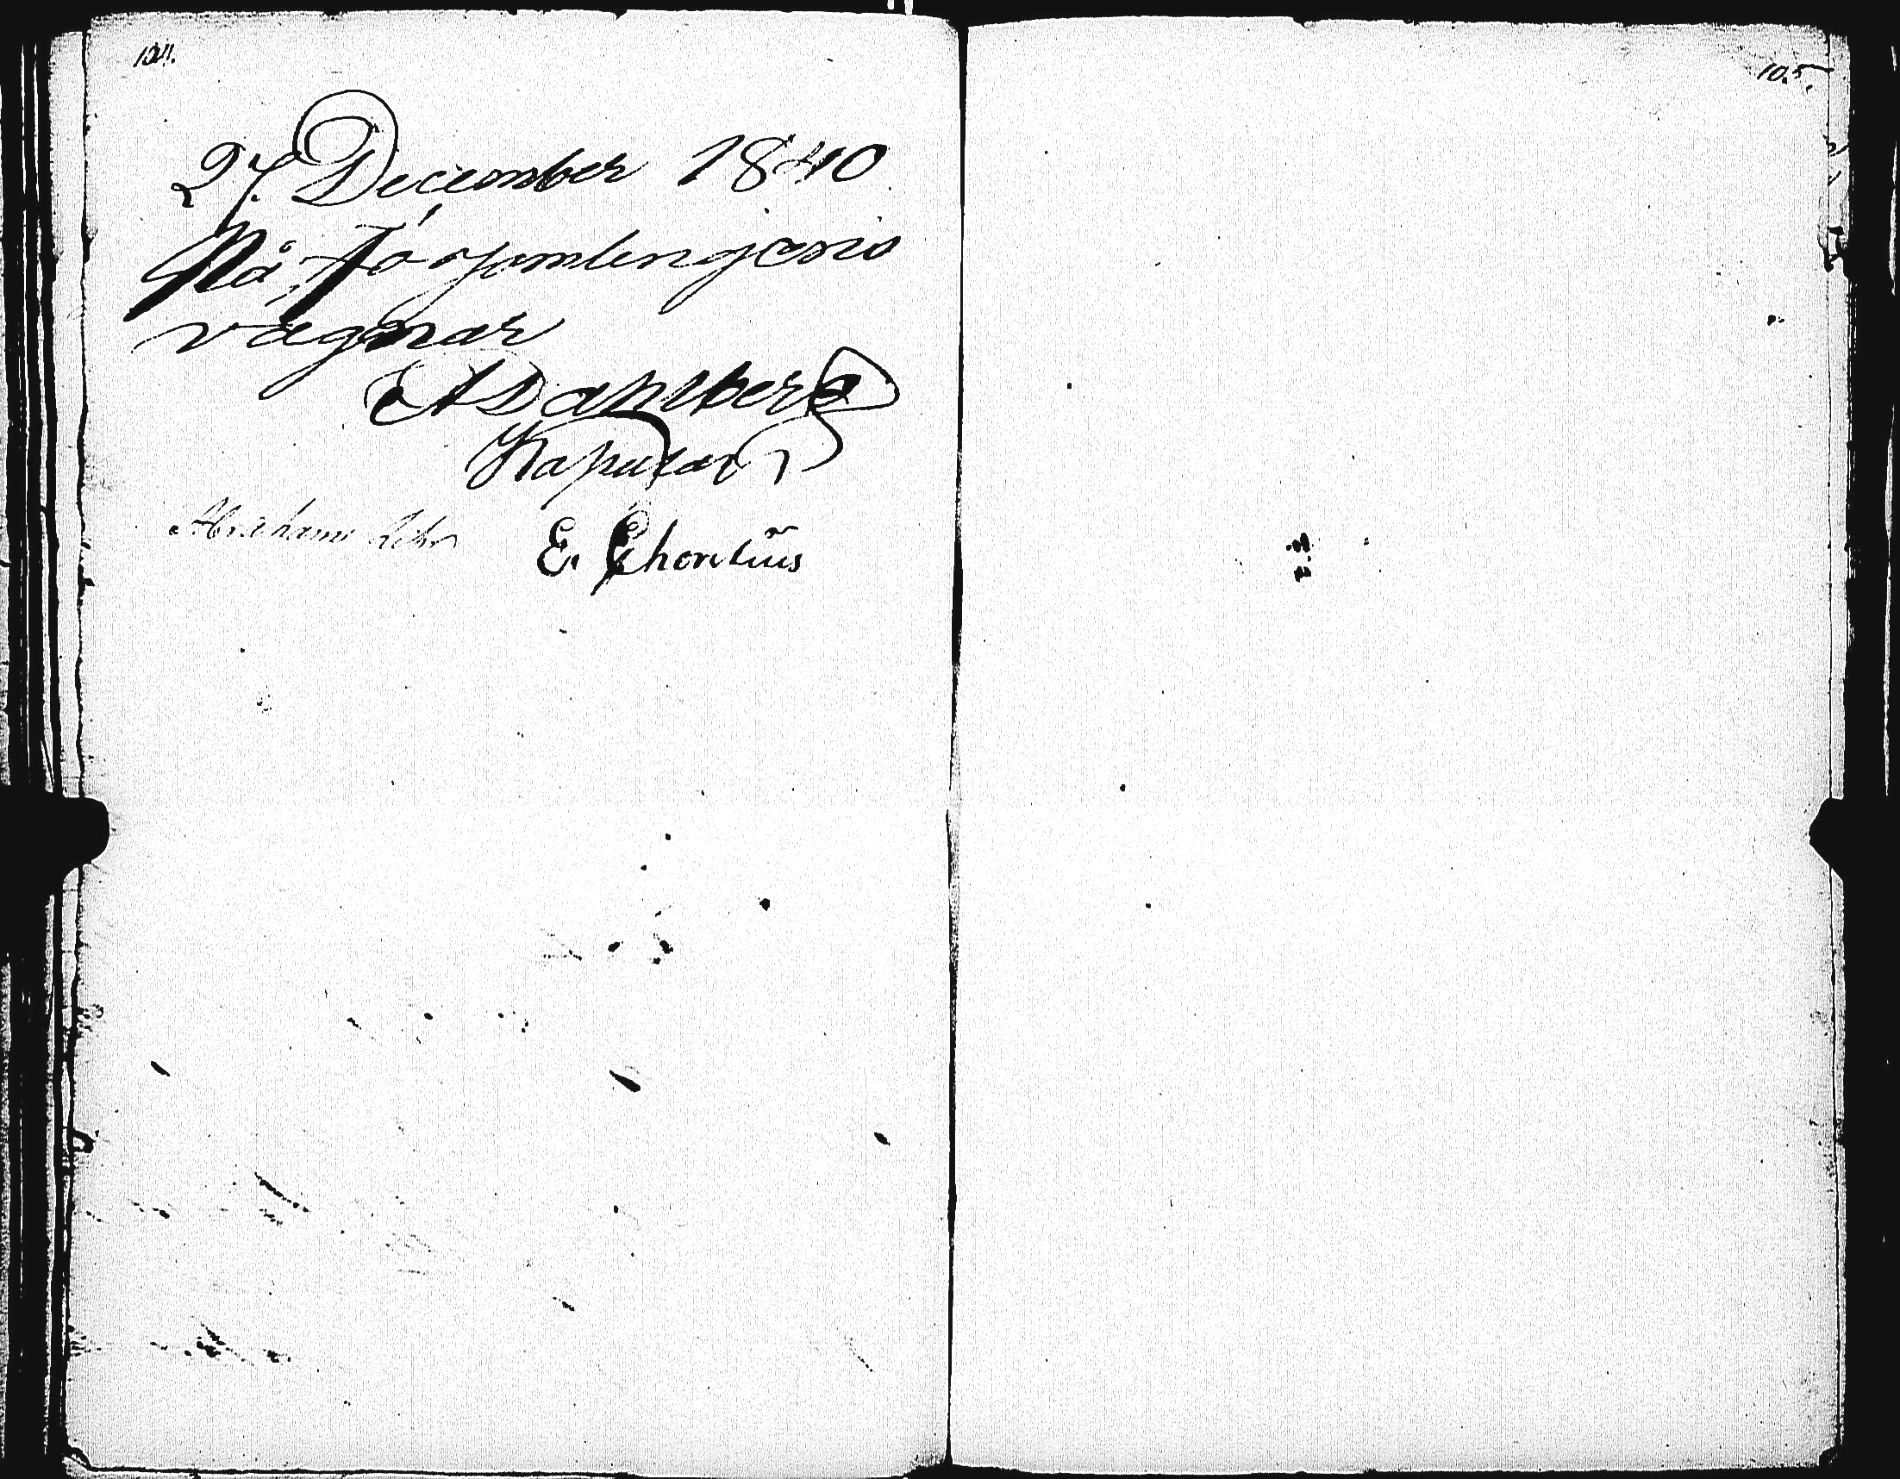 104.
27. December 1840
På Församlingens
vägnar
A Dahlberg
Kapellan
E. Choræus
105.